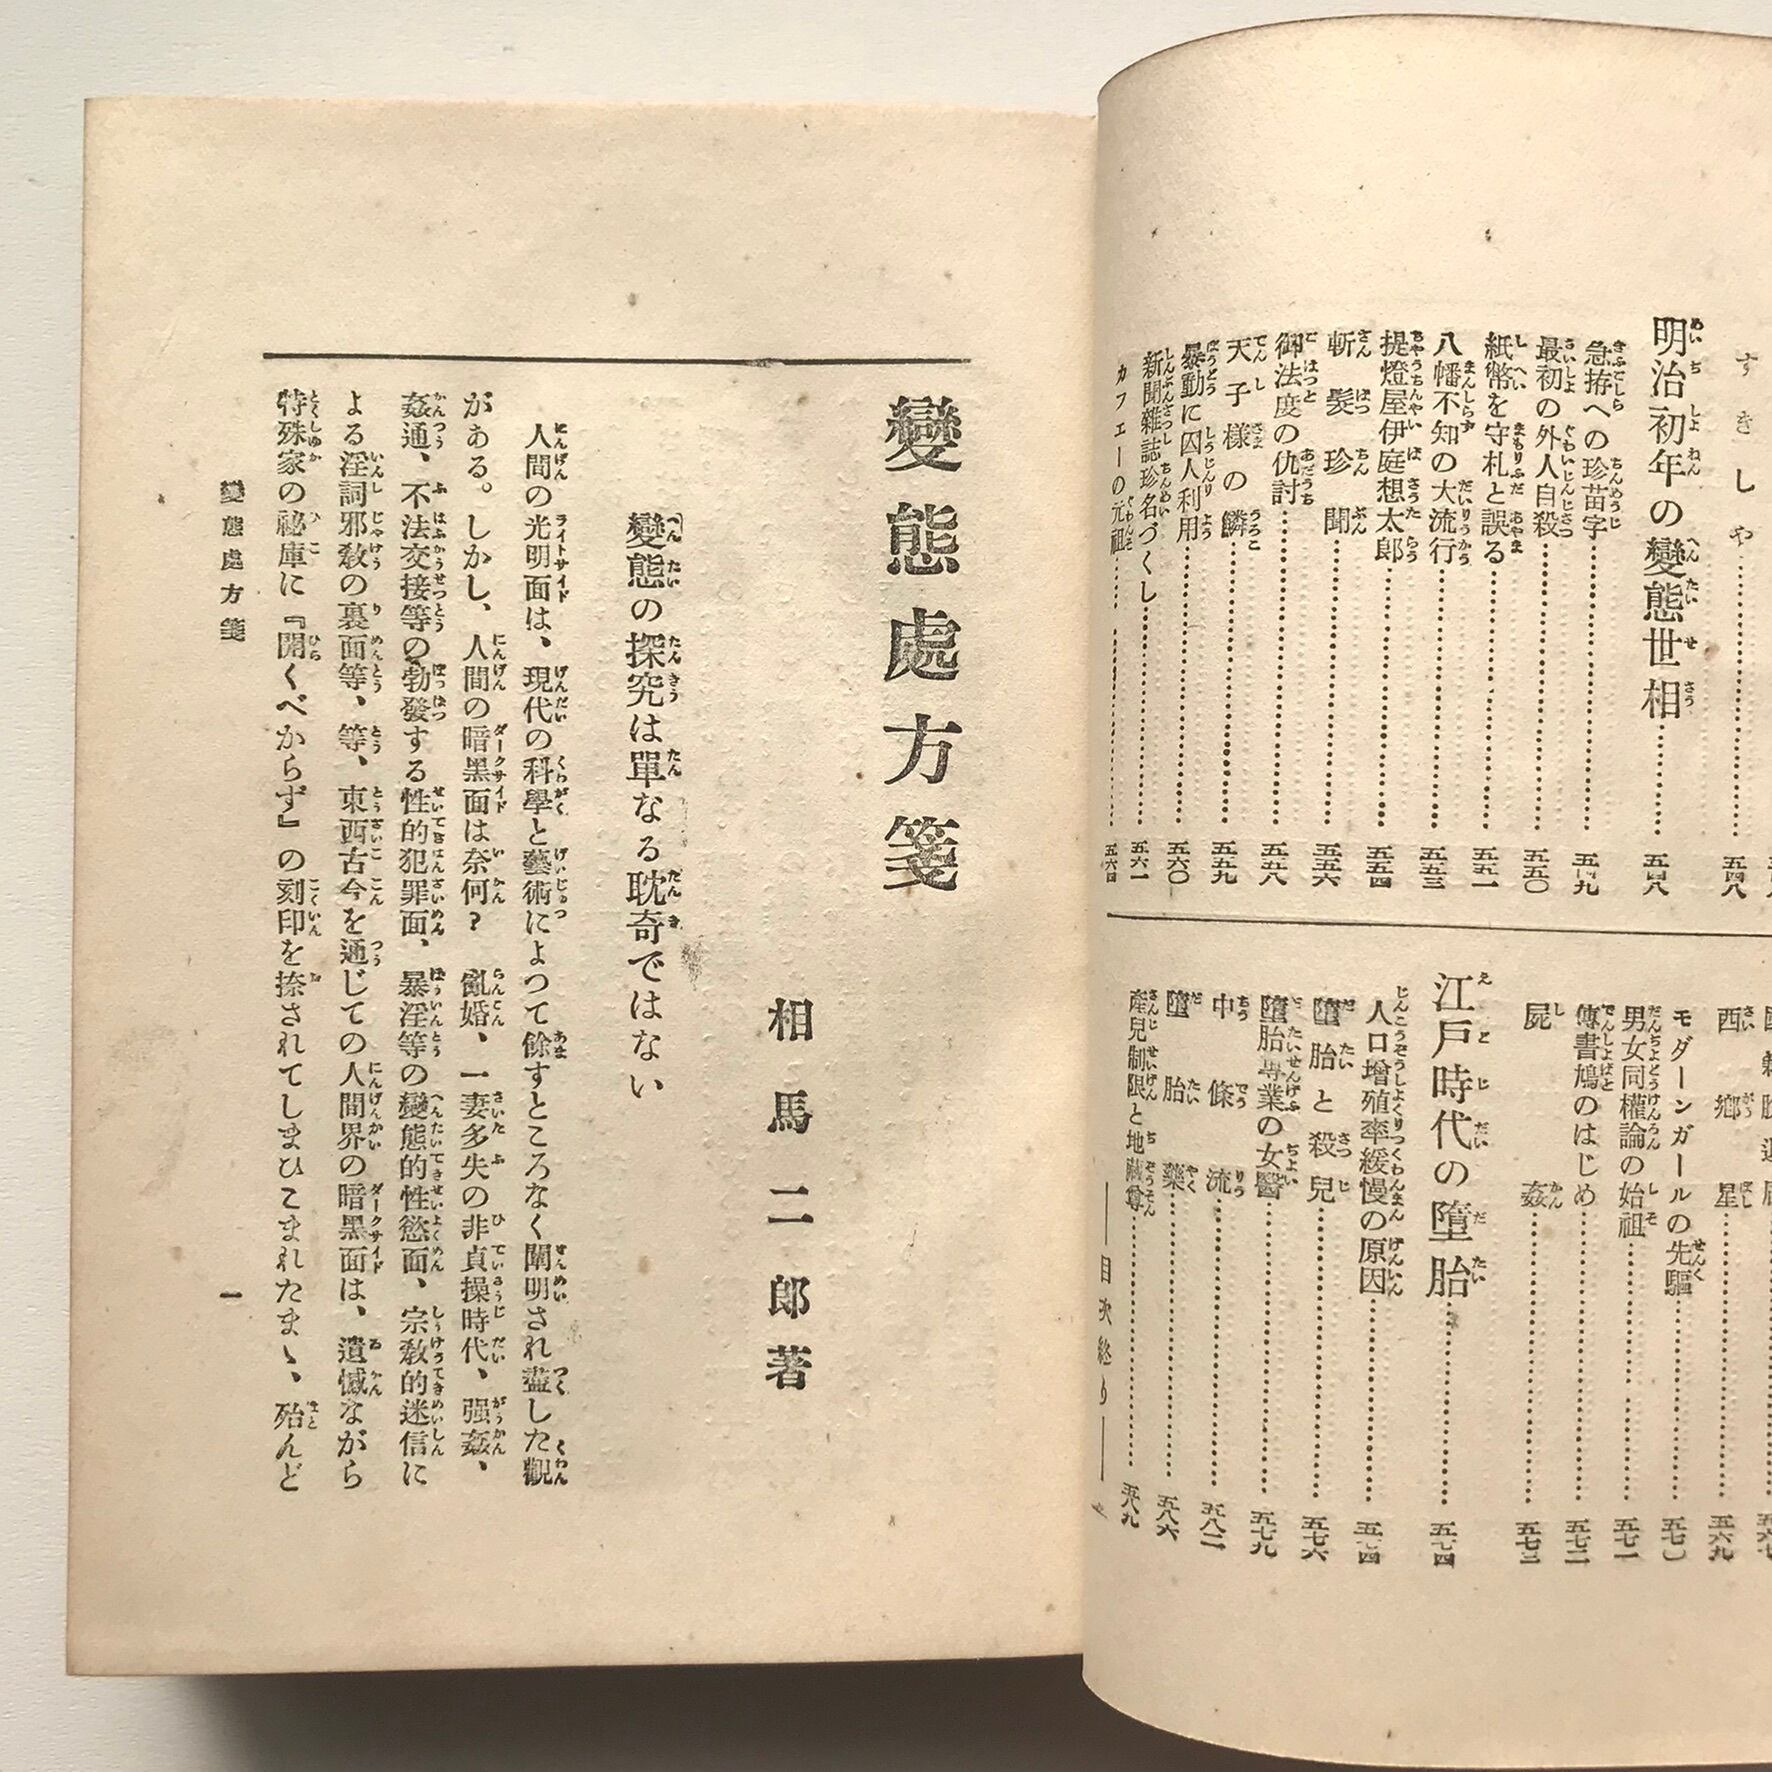 すきしや……五四八
明治初年の變態世相……五四八
急拵への珍苗字……五四九
最初の外人自殺……五五〇
紙幣を守札と誤る……五五一
八幡不知の大流行……五五三
提燈屋伊庭想太郎……五五四
斬髮珍聞……五五六
御法度の仇討……五五八
天子樣の鱗……五五九
暴動に囚人利用……五六〇
新聞雜誌珍名づくし……五六一
カフエーの元祖……
西鄉星……五六九
モダーンガールの先驅……五七〇
男女同權論の始祖……五七一
傳書鳩のはじめ……五七二
屍姦……五七三
江戸時代の墮胎……五七四
人口增殖率緩慢の原因……五七四
墮胎と殺兒……五七六
墮胎專業の女醫……五七九
中條流……五八二
墮胎藥……五八六
產兒制限と地藏尊……五八九
――目次終り――
變態處方箋
相馬二郎著
變態の探究は單なる耽奇ではない
人間の光明面は、現代の科學と藝術によつて餘すところなく闡明され盡した觀
がある。しかし、人間の暗黑面は奈何? 亂婚、一妻多夫の非貞操時代、强姦、
姦通、不法交接等の勃發する性的犯罪面、暴淫等の變態的性慾面、宗敎的迷信に
よる淫詞邪敎の裏面等、等、東西古今を通じての人間界の暗黑面は、遺憾ながら
特殊家の祕庫に『開くべからず』の刻印を捺されてしまひこまれたまゝ、殆んど
變態處方箋
一